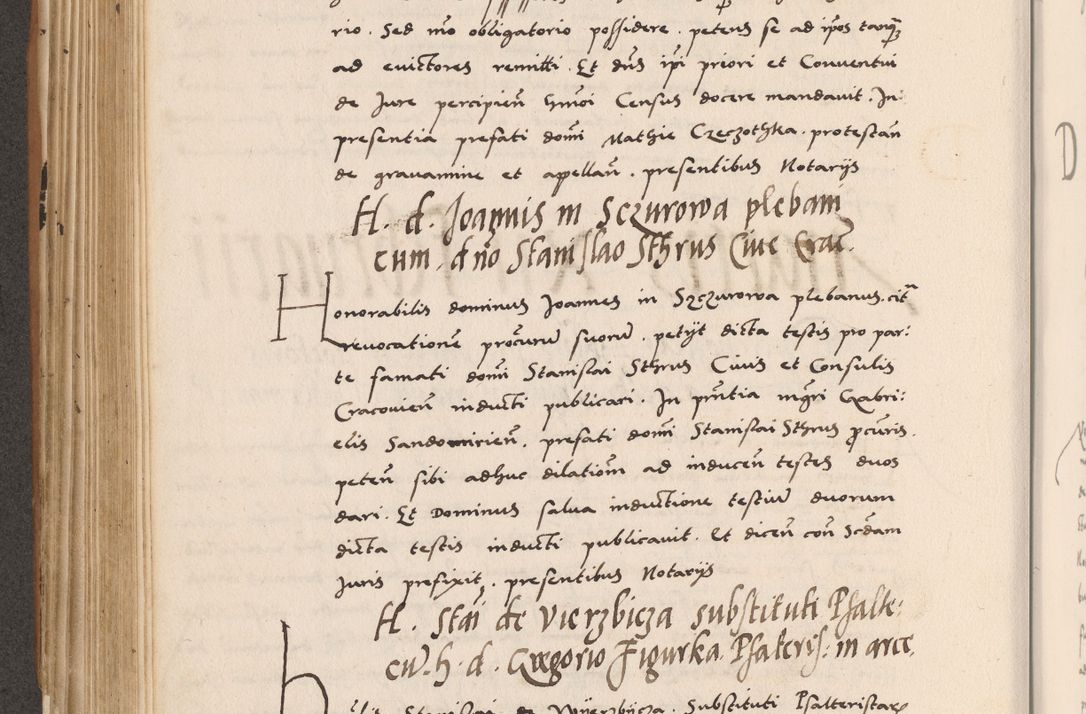 rio. Sed mo obligatorio possidere. petens se ad ipos tanq
ad evictores remitti. Et dns ipi priori et Conventui
de Jure percipien hmoi Census docere mandavit. In
presentia prefati domi Mathie Czeczothka. protestan
de gravamine et apellan. presentibus Notarijs
H. d. Joannis in Sczurowa plebani
cum. dno Stanislao Sthrus Cive Crac.
Honorabilis dominus Joannes in Szczurowa plebanus. cit
revocatione procurum suorum. petijt dicta testis pro par:
te famati domi Stanislai Sthrus Civis et Consulis
Cracovien inducti publicari. In pntia mgri Gabri:
elis Sandomirien. prefati domi Stanislai Sthrus procuris.
peten sibi adhuc dilationem ad inducen testes duos
dari. Et Dominus salva inductione testium duorum
dicta testis inducti publicavit. Et dicen con Scdam
Juris prefixit. presentibus Notarijs
H. Stai de Vierzbicza substituti Psalte:
cum. h. d. Gregorio Figurka Psalteris: in arce.
Stanislai de Wyerzbijcza. Substituti Psalteristare